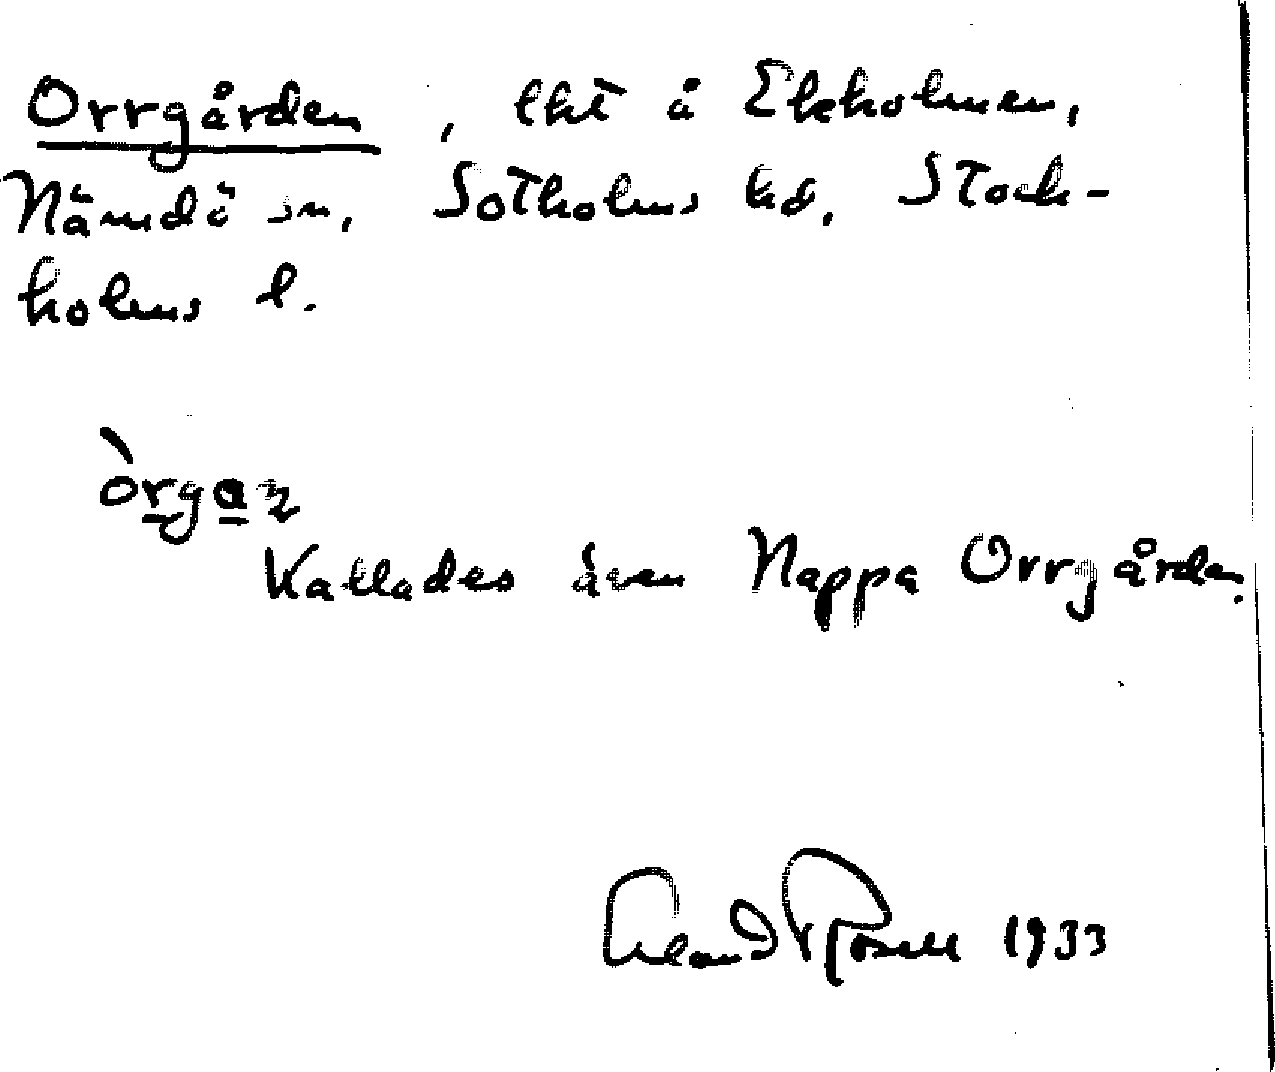 Orrgården, lht å Ekholmen,
Nämdö sn, Sotholms hd, Stock-
holms l.
òrgaɳ
Kallades även Nappa Orrgården.
Rosell 1933